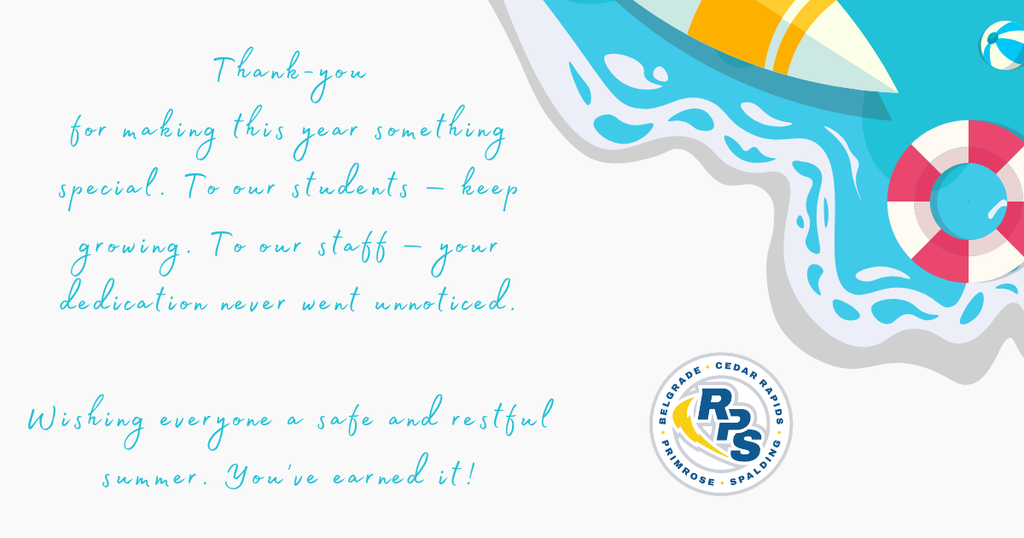 Thank-you
for making this year something
special. To our students – keep
growing. To our staff – your
dedication never went unnoticed.
Wishing everyone a safe and restful
summer. You've earned it!
BELGRADE • CEDAR RAPIDS
RPS
PRIMROSE • SPALDING